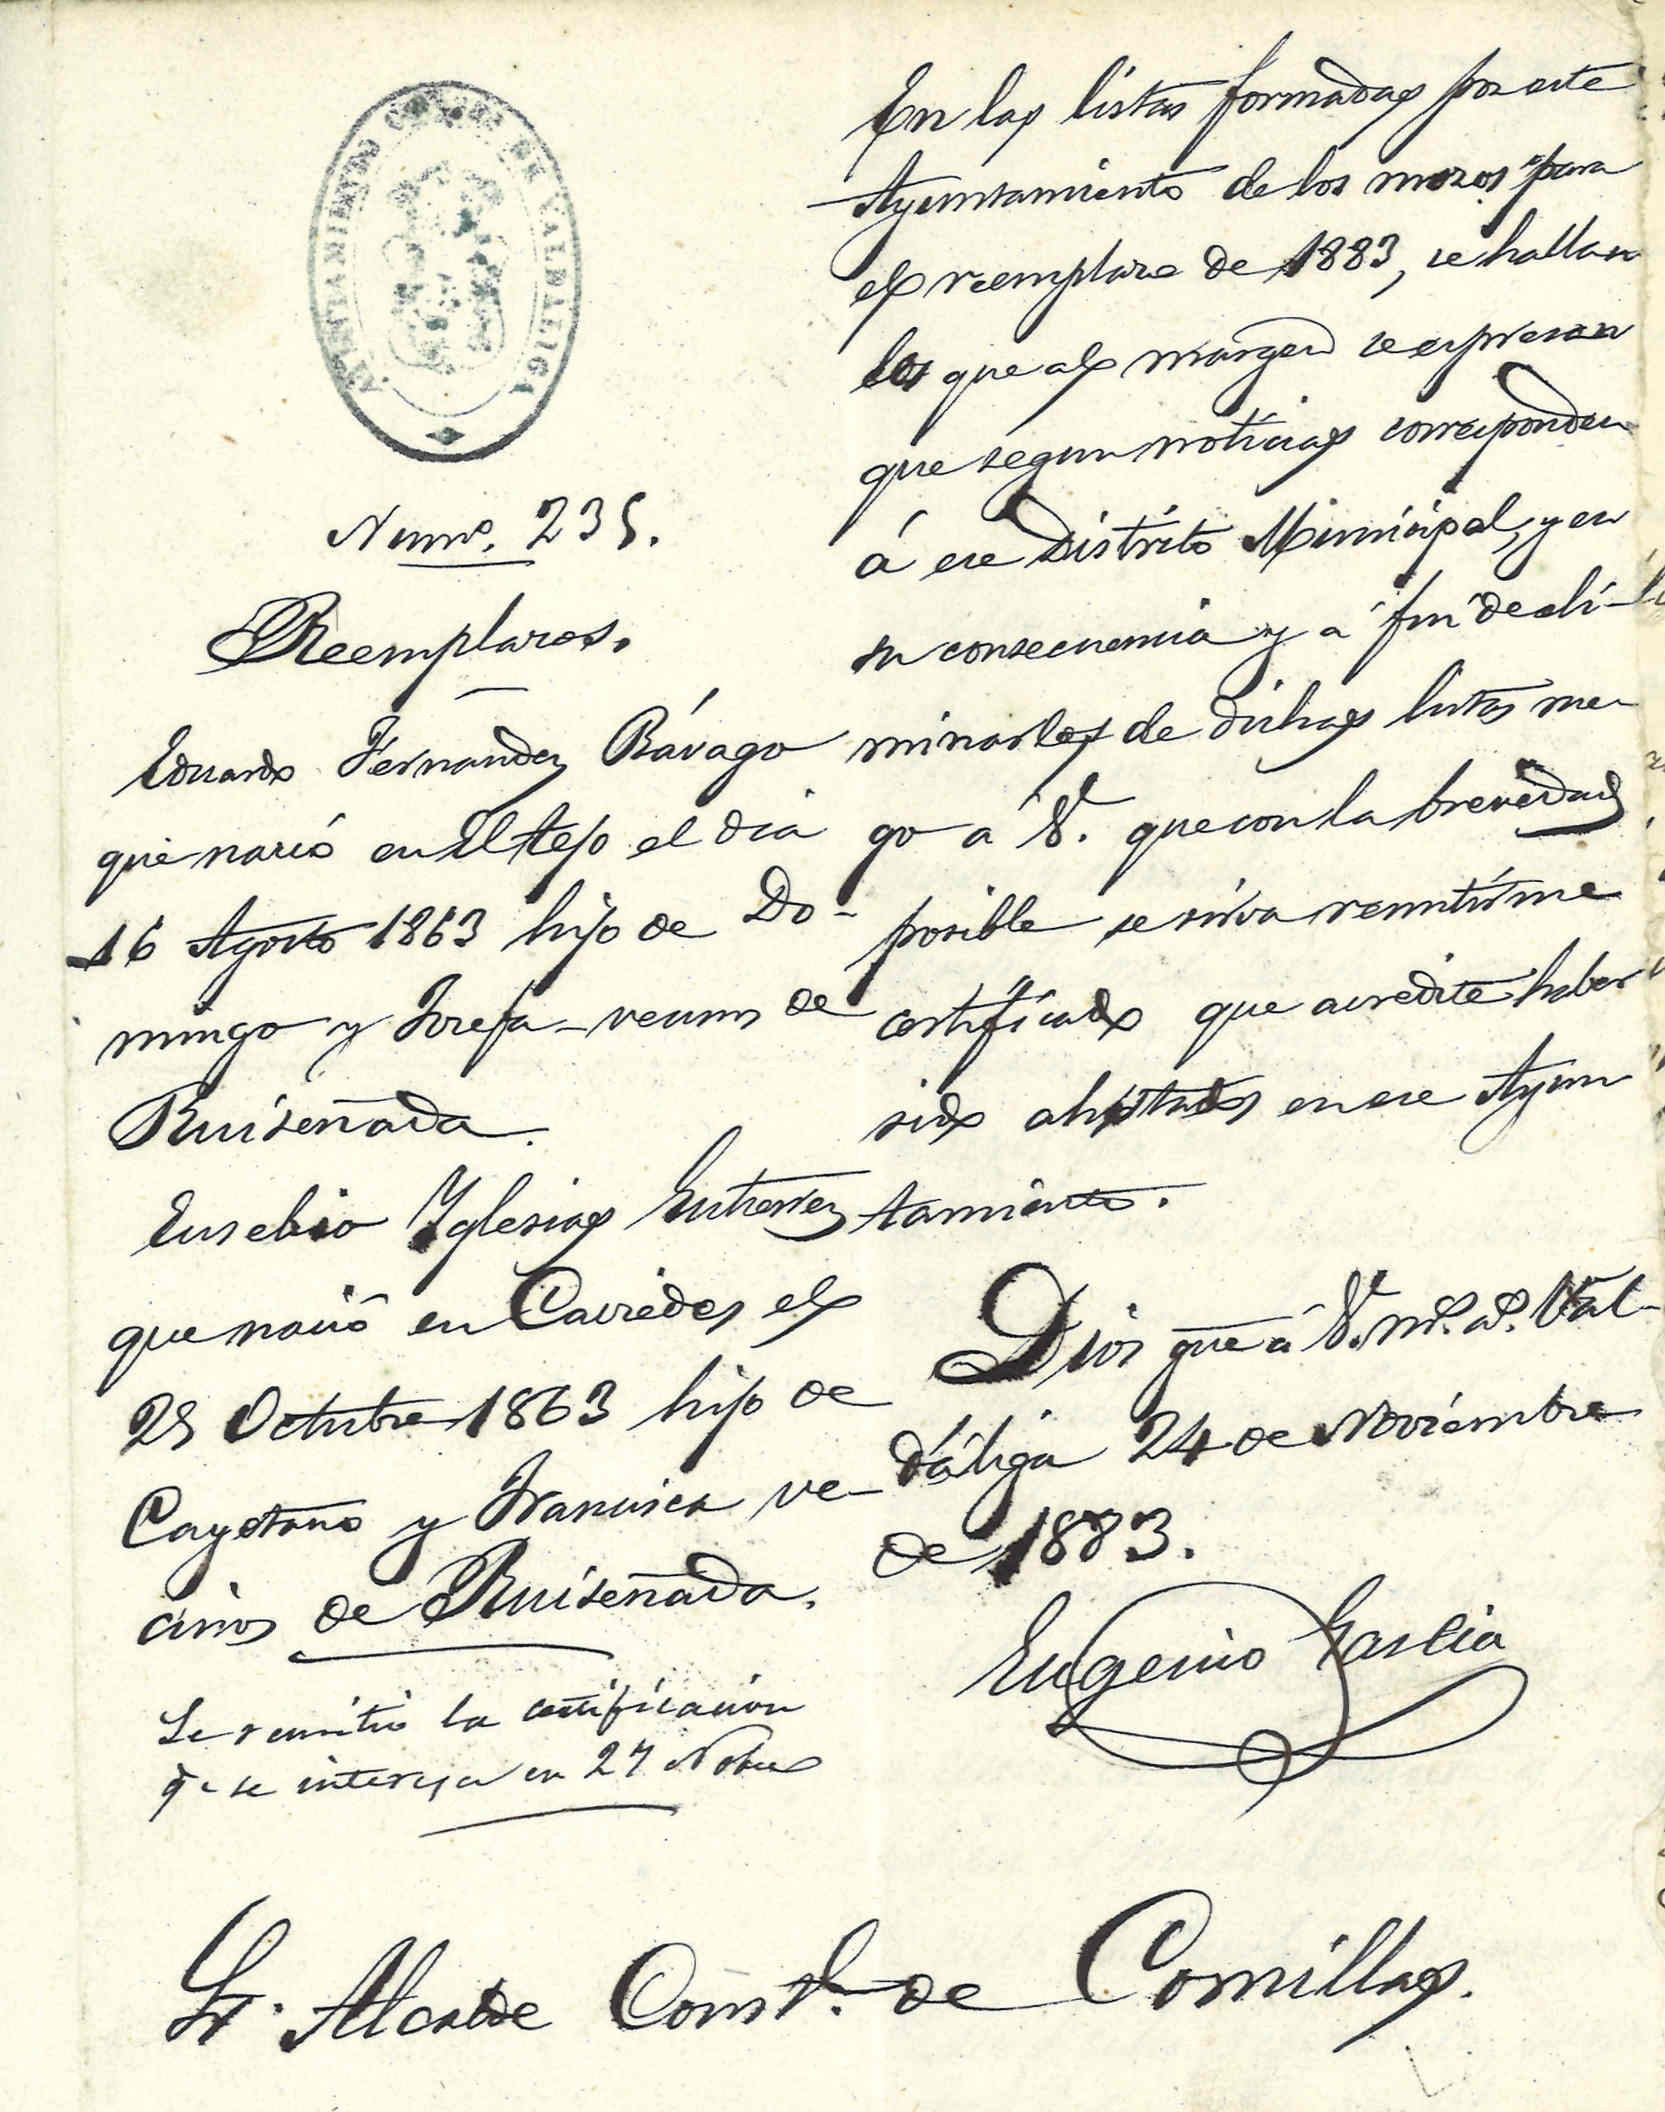 AYUNTAMIENTO CONST. DE VALDALIGA
Numº. 235.
Reemplazos.
Eduardo Fernandez Rávago
que nació en El tejo el dia
16 Agosto 1863 hijo de Do-
mingo y Josefa - vecinos de
Ruiseñada.
Eusebio Yglesias Gutierrez
que nació en Caviedes el
25 Octubre 1863 hijo de
Cayetano y Francisca ve-
cinos de Ruiseñada.
Se remitió la certificacion
q̄e se interesa en 27 Nobre
En las listas formadas por este
Ayuntamiento de los mozos para
el reemplazo de 1883, se hallan
los que al margen se expresan
que segun noticias corresponden
á ese Distrito Municipal, y en
su consecuencia y a fin de eli-
minarlos de dichas listas me
go a V. que con la brevedad
posible se sirva remitirme
certificado que acredite haber
sido alistados en ese Ayun
tamiento.
Dios gue a V. ms. as. Val-
dáliga 24 de Noviembre
de 1883.
Eugenio Garcia
Sr. Alcalde Constl. de Comillas.